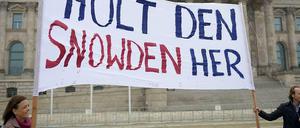 HOLT DEN
SNOWDEN HER